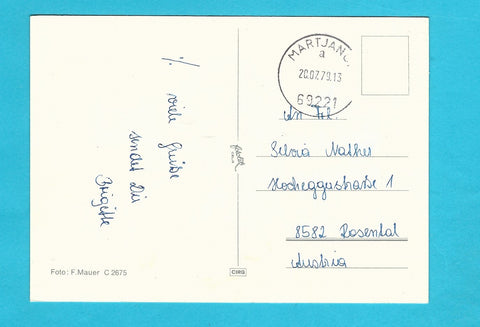 ·/.
viele Grüße
sendet Dir
Brigitte
Foto: F. Mauer C 2675
CIRG
MARTJANC
a
20.07.79.13
69221
An Frl.
Silvia Nather
Hocheggastraße 1
8582 Rosental
Austria